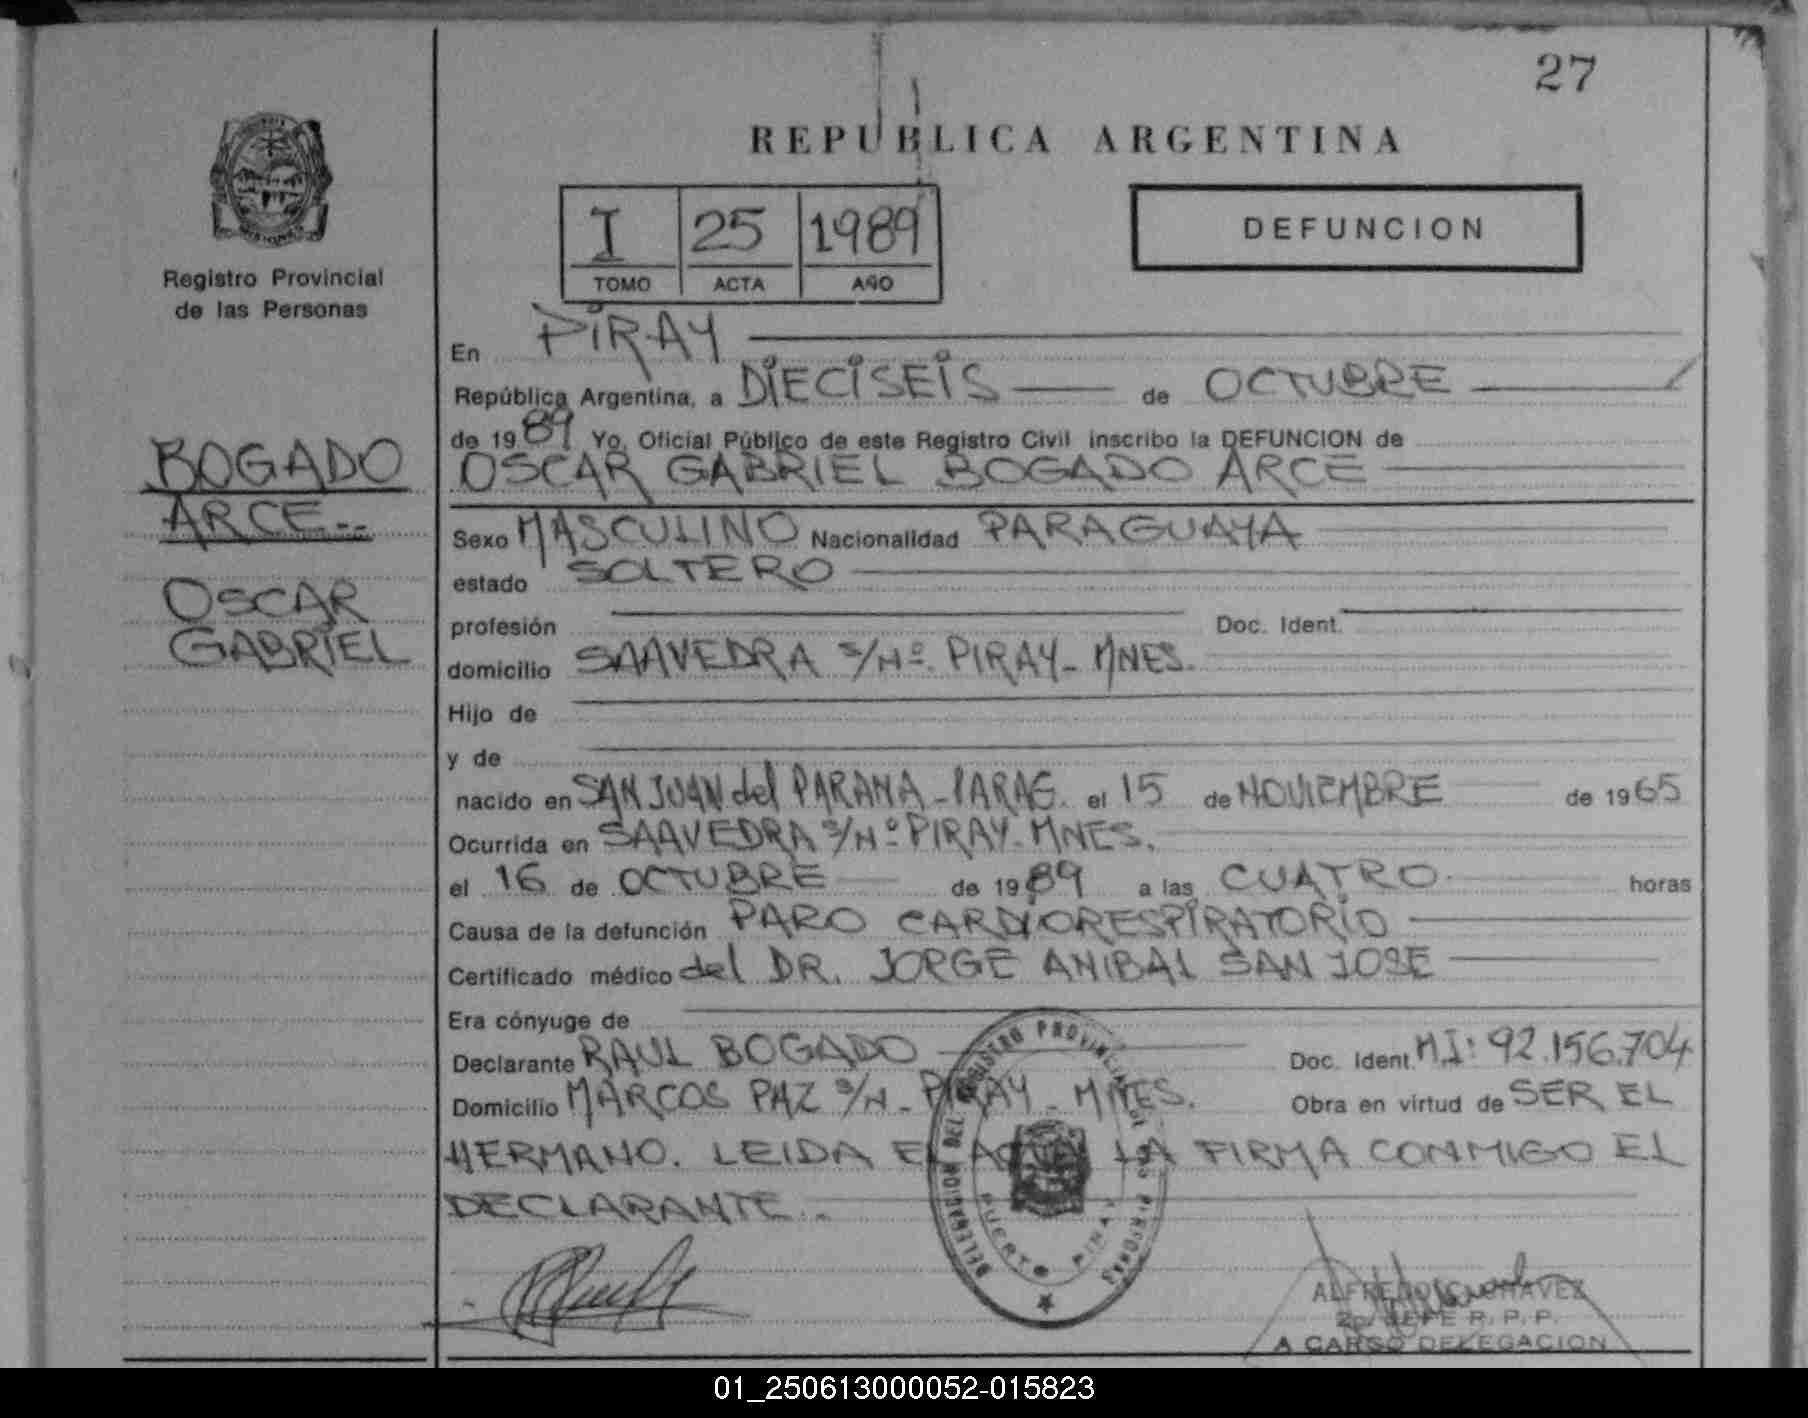 27
REPUBLICA ARGENTINA
I 25 1989
TOMO ACTA AÑO
DEFUNCION
Registro Provincial
de las Personas
BOGADO
ARCE--
OSCAR
GABRIEL
En PIRAY
República Argentina, a DIECISEIS de OCTUBRE
de 1989 Yo, Oficial Público de este Registro Civil inscribo la DEFUNCION de
OSCAR GABRIEL BOGADO ARCE
Sexo MASCULINO Nacionalidad PARAGUAYA
estado SOLTERO
profesión Doc. Ident.
domicilio SAAVEDRA S/Nº. PIRAY- MNES.
Hijo de
y de
nacido en SAN JUAN del PARANA - PARAG. el 15 de NOVIEMBRE de 1965
Ocurrida en SAAVEDRA S/Nº PIRAY- MNES.
el 16 de OCTUBRE de 1989 a las CUATRO horas
Causa de la defunción PARO CARDIORESPIRATORIO
Certificado médico del DR. JORGE ANIBAL SAN JOSE
Era cónyuge de
Declarante RAUL BOGADO Doc. Ident. M.I: 92.156.704
Domicilio MARCOS PAZ S/N - PIRAY - MNES. Obra en virtud de SER EL
HERMANO. LEIDA EL ACTA LA FIRMA CONMIGO EL
DECLARANTE..
DELEGACION DEL REGISTRO PROVINCIAL DE LAS PERSONAS
PUERTO PIRAY
ALFREDO CHAVEZ
2o. JEFE R. P. P.
A CARGO DELEGACION
01_250613000052-015823